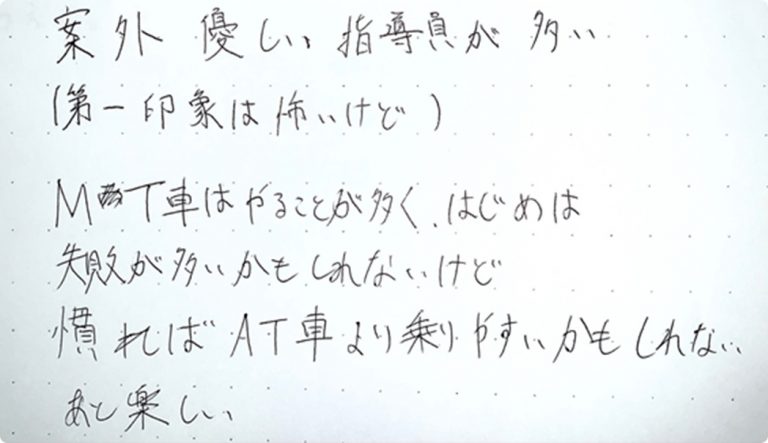 案外優しい指導員が多い
(第一印象は怖いけど)
MT車はやることが多く、はじめは
失敗が多いかもしれないけど
慣ればAT車より乗りやすいかもしれない
あと楽しい